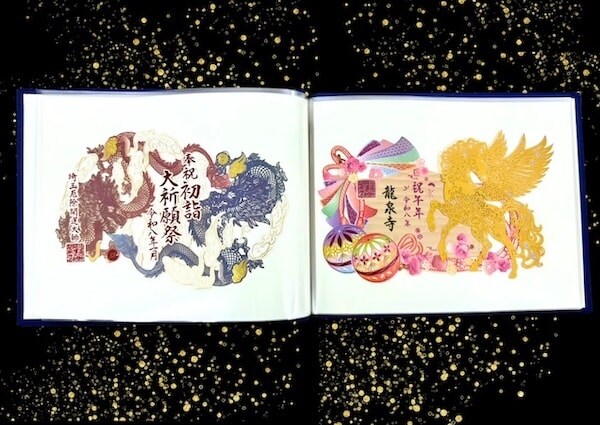 奉祝 初詣
大祈願祭
令和八年一月
埼玉厄除開運大師
祝午年
令和八年
龍泉寺